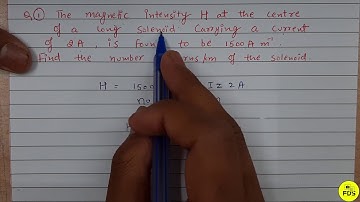 Q.① The magnetic Intensity H at the centre
of a long solenoid Carrying a current
of 2A, is found to be 1500 A m⁻¹.
Find the number of turns/m of the solenoid
H = 1500 I = 2 A
FDS